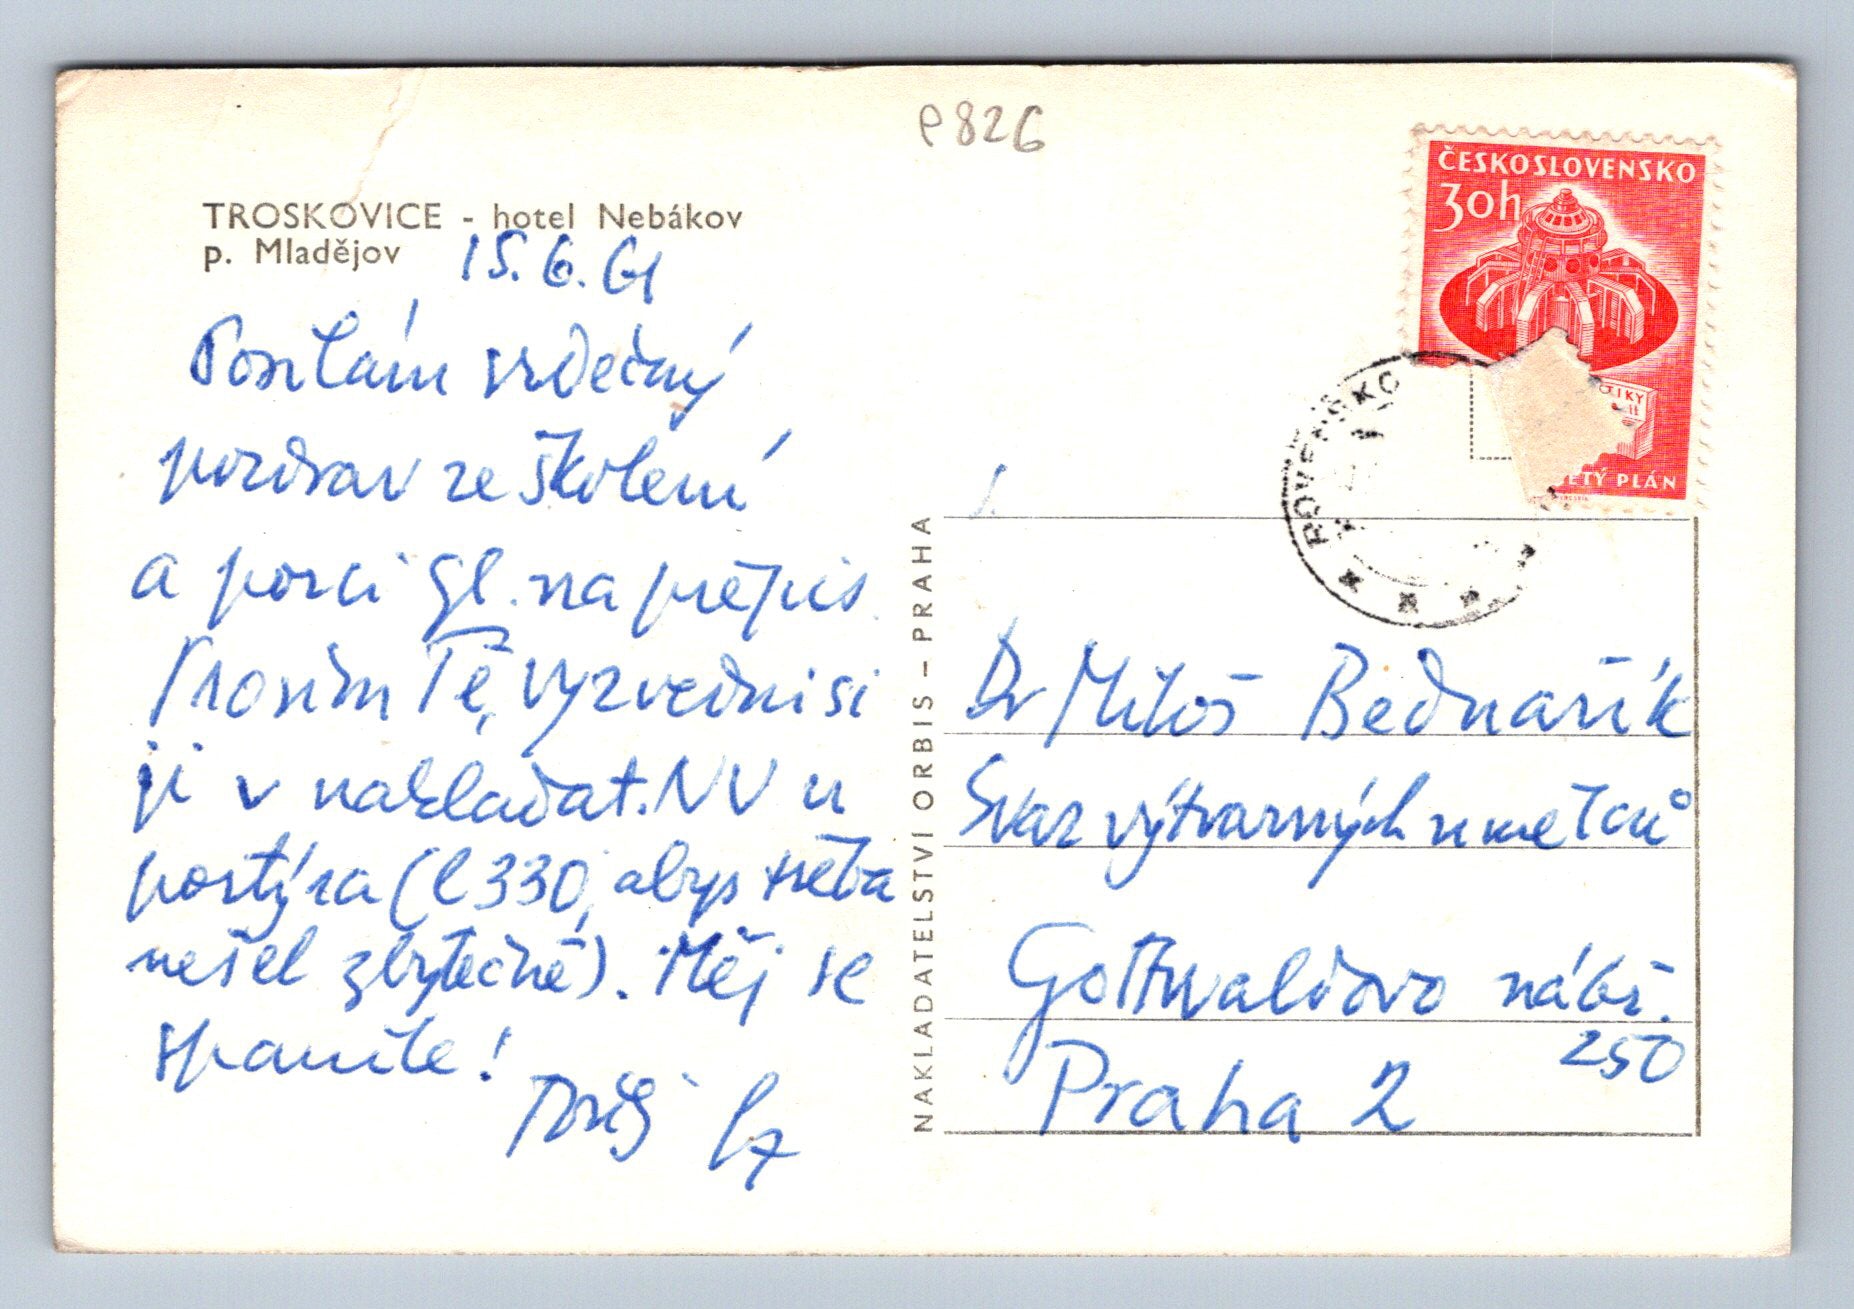 e826
ČESKOSLOVENSKO
30h
TROSKOVICE - hotel Nebákov
p. Mladějov
15. 6. 61
Posílám srdečný
pozdrav ze školení
a porci gl. na přepis.
Prosím Tě, vyzvedni si
ji v nakladat. NV u
portýra (č 330, abys třeba
nešel zbytečně). Měj se
spanile!
ROVENSKO
ETÝ PLÁN
NAKLADATELSTVÍ ORBIS – PRAHA
Dr Miloš Bednařík
Svaz výtvarných umělců
Gottwaldovo nábř.
250
Praha 2